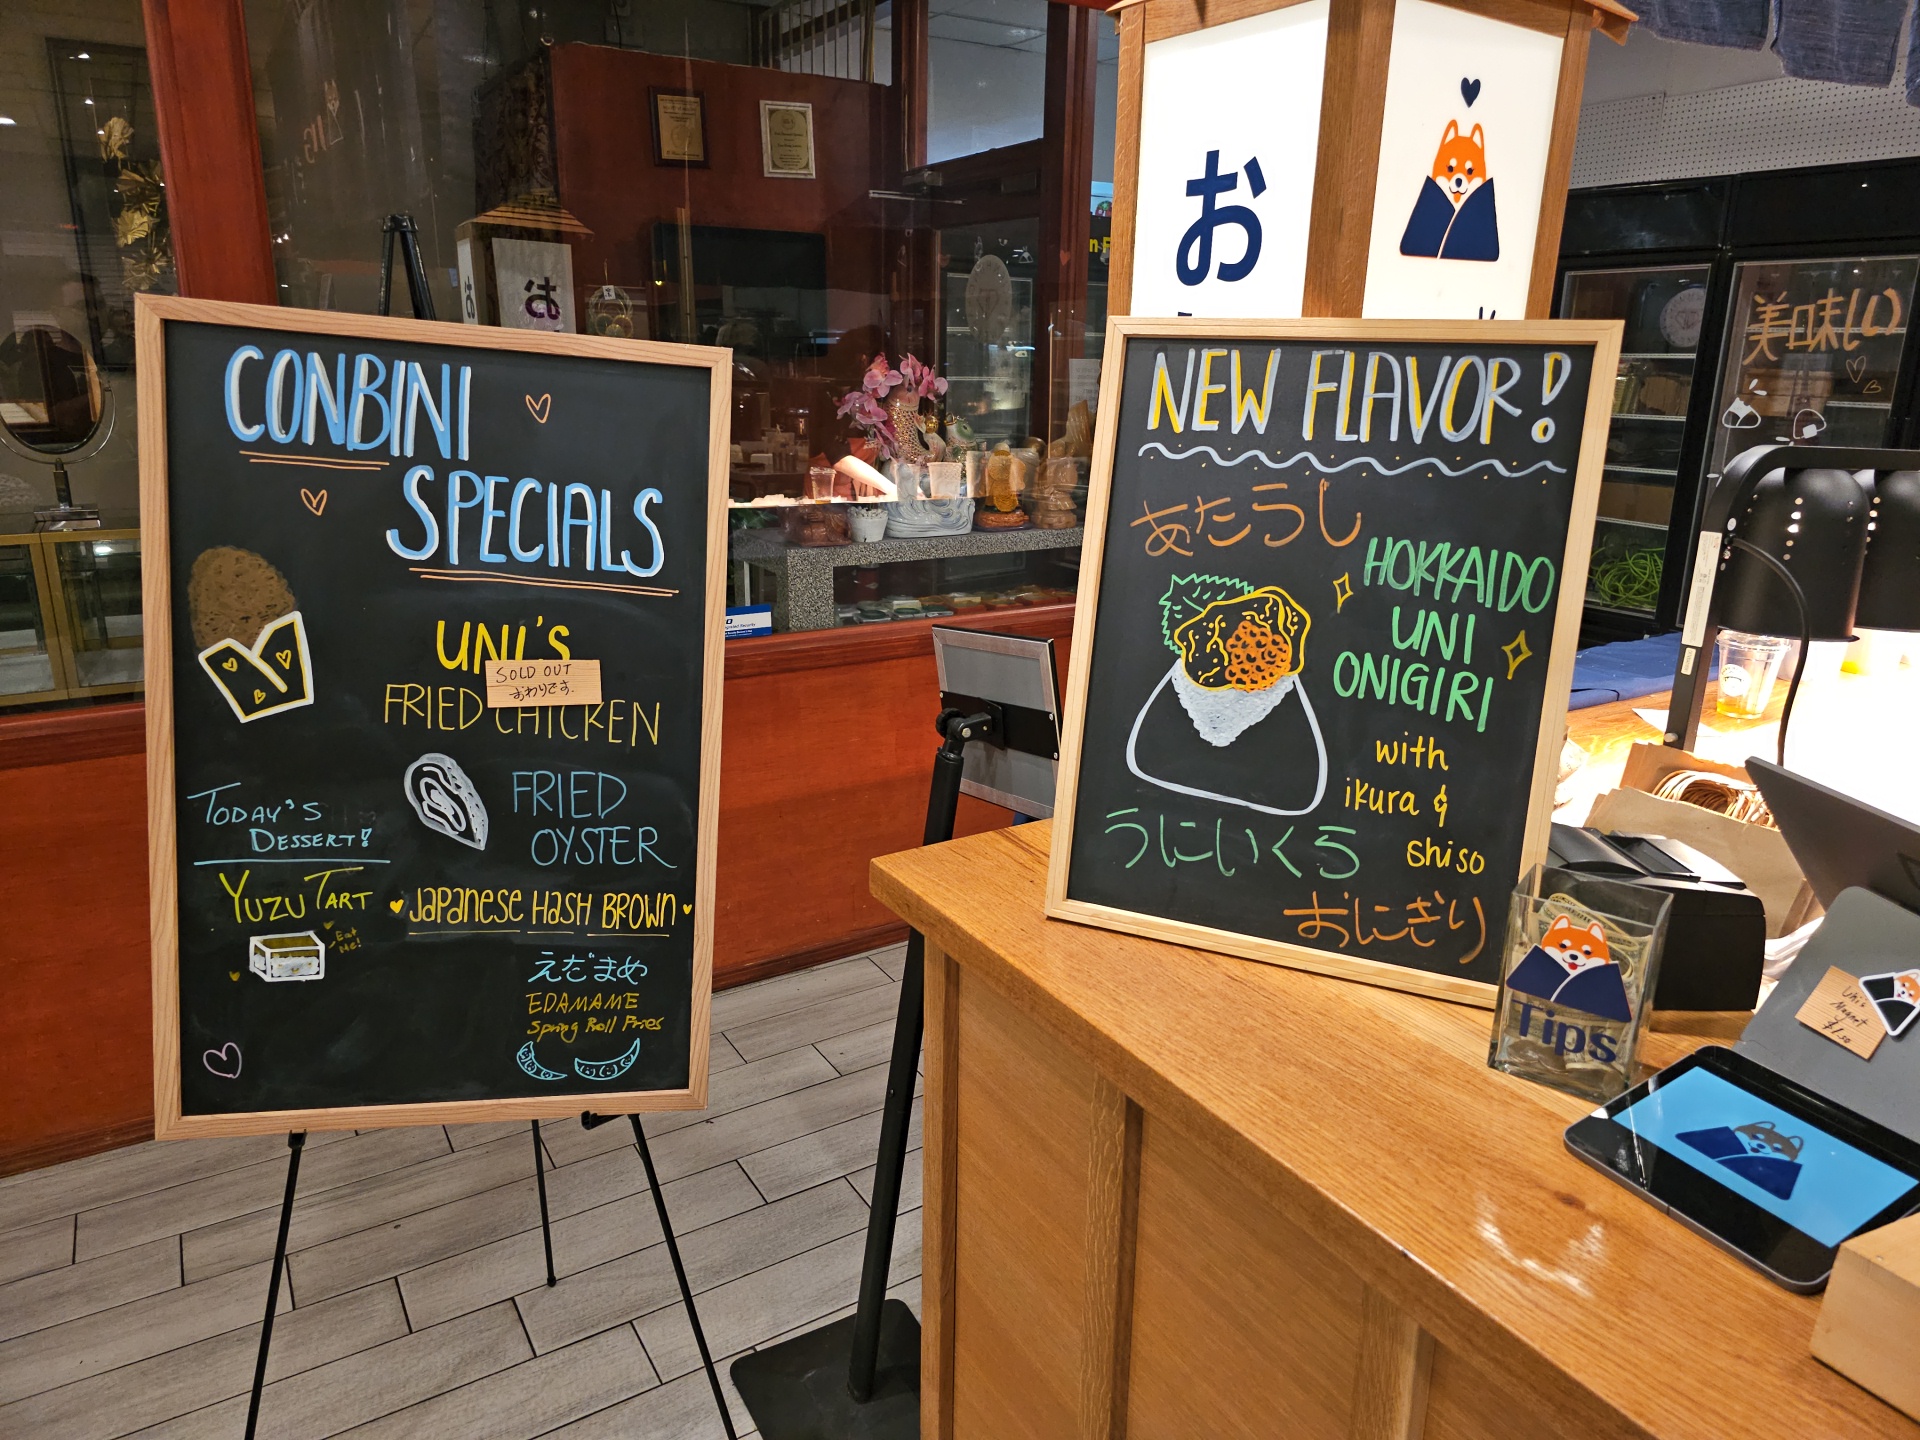 CONBINI
SPECIALS
UNI'S
SOLD OUT
おわりです.
FRIED CHICKEN
FRIED
OYSTER
TODAY'S
DESSERT!
YUZU TART
Eat
Me!
JAPANESE HASH BROWN
えだまめ
EDAMAME
Spring Roll Fries
お
NEW FLAVOR!
あたらし
HOKKAIDO
UNI
ONIGIRI
with
ikura &
shiso
うにいくら
おにぎり
美味しい
Tips
Uni's
Magnet